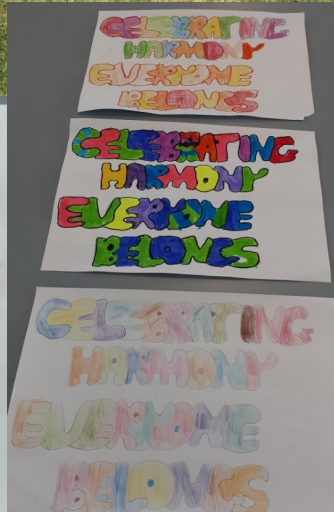 CELEBRATING
HARMONY
EVERYONE
BELONGS
CELEBRATING
HARMONY
EVERYONE
BELONGS
CELEBRATING
HARMONY
EVERYONE
BELONGS